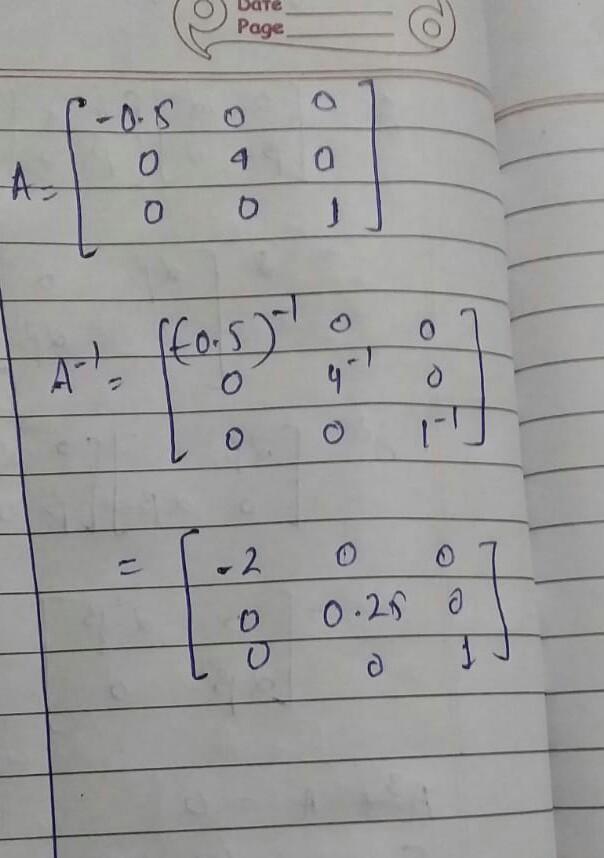 Date
Page
-0.5 0 0
A= 0 4 0
0 0 1
(-0.5)^-1 0 0
A^-1 = 0 4^-1 0
0 0 1^-1
= -2 0 0
0 0.25 0
0 0 1